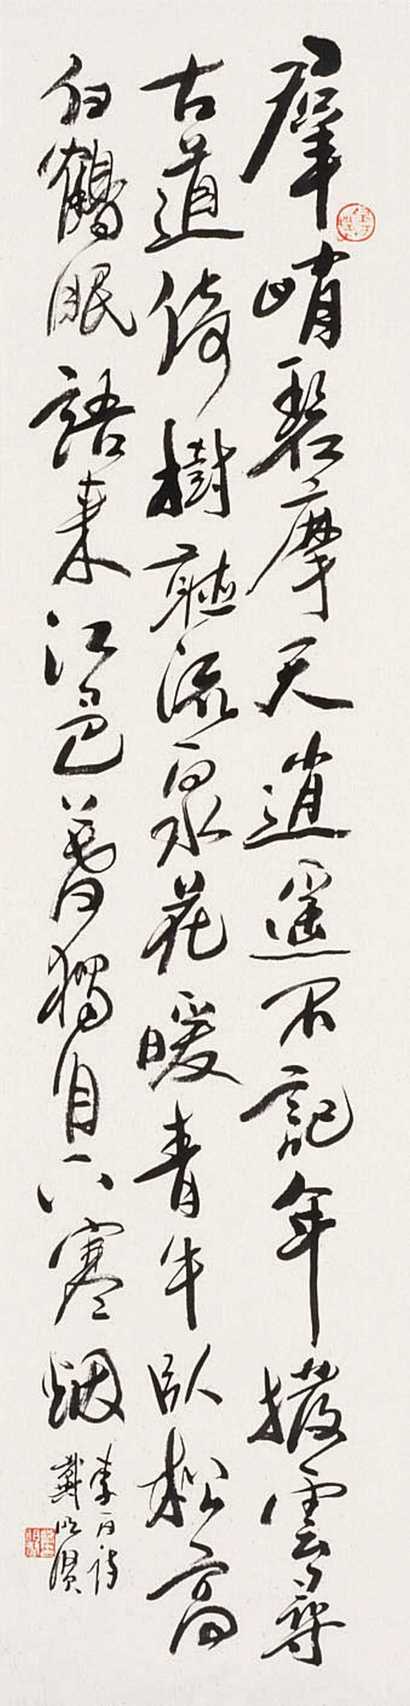 羣峭碧摩天逍遙不記年撥雲尋
古道倚樹聽流泉花暖青牛臥松高
白鶴眠語来江色暮獨自下寒烟
李白詩
戴明賢